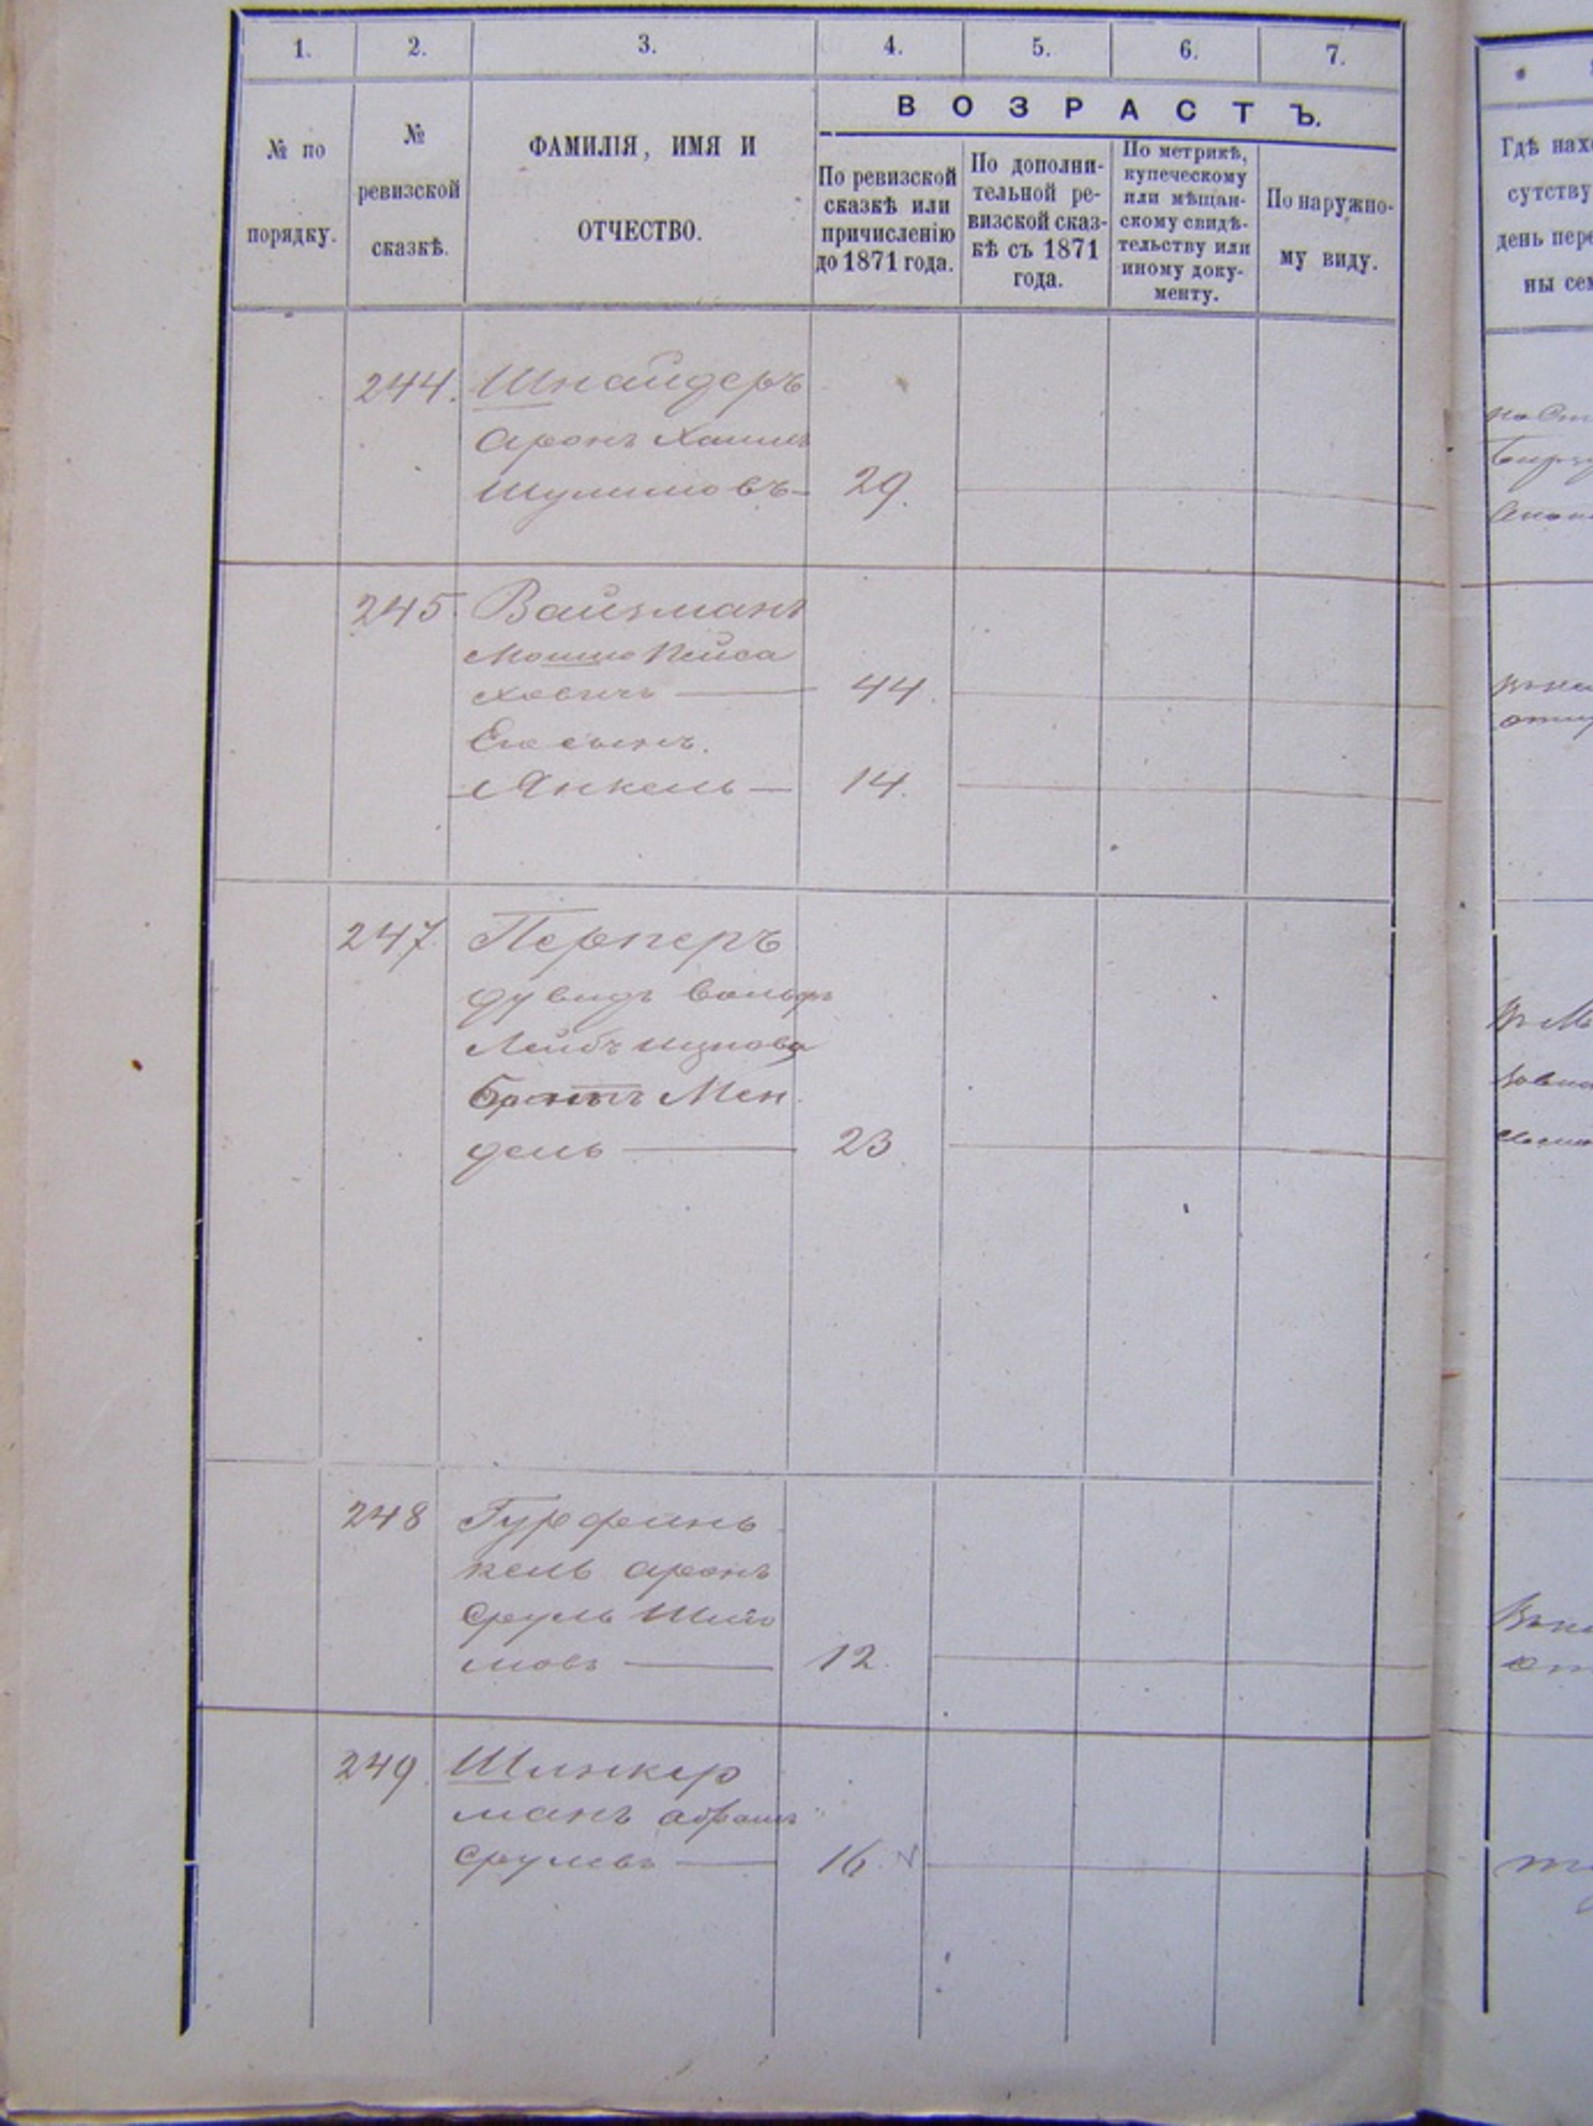 1. 2. 3. 4. 5. 6. 7.
№ по
порядку.
№
ревизской
сказкѣ.
ФАМИЛІЯ, ИМЯ И
ОТЧЕСТВО.
ВОЗРАСТЪ.
По ревизской
сказкѣ или
причисленію
до 1871 года.
По дополни-
тельной ре-
визской сказ-
кѣ съ 1871
года.
По метрикѣ,
купеческому
или мѣщан-
скому свидѣ-
тельству или
иному доку-
менту.
По наружно-
му виду.
244. Шнайдеръ
Аронъ Хаимъ
Шулимовъ 29.
245. Вайзманъ
Мошко Пейса
ховичъ 44.
Его сынъ.
Янкель 14.
247 Перперъ
Дувидъ Вольфъ
Лейбъ Ицкова
Братъ Мен
дель 23
248 Гурфинь
кель Аронъ
Сруль Шлио
мовъ 12.
249. Шинкар
манъ Абрамъ
Срулевъ 16.
Гдѣ нахо
сутству
день пере
ны сем